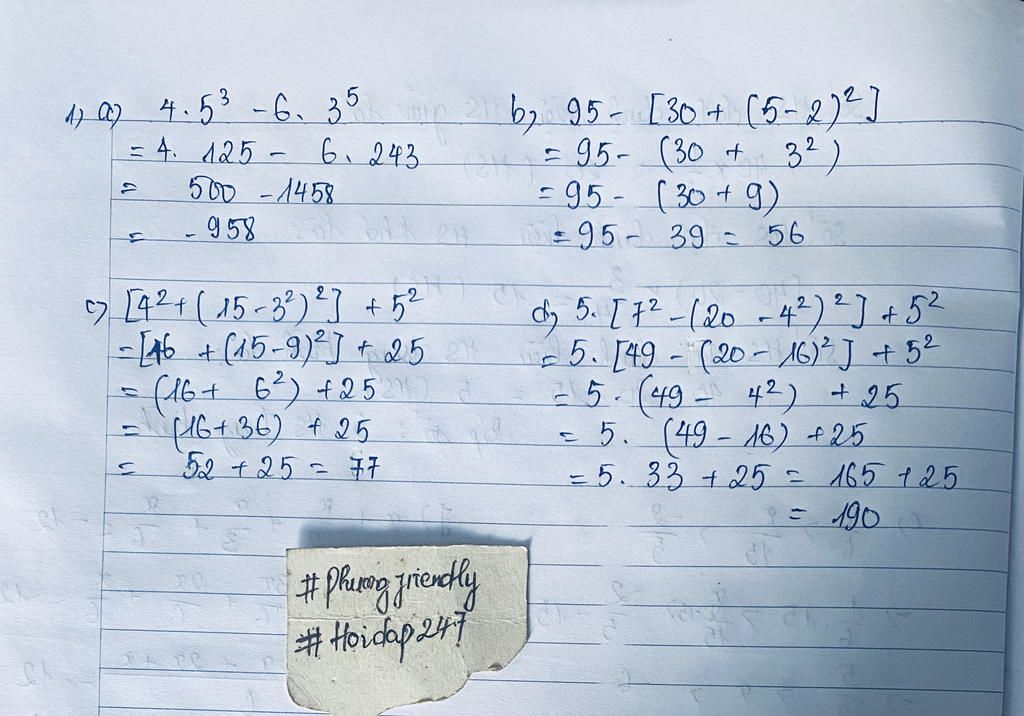 1, a) 4 . 5³ - 6 . 3⁵
= 4 . 125 - 6 . 243
= 500 - 1458
= -958
b, 95 - [30 + (5 - 2)²]
= 95 - (30 + 3²)
= 95 - (30 + 9)
= 95 - 39 = 56
c) [4² + (15 - 3²)²] + 5²
= [16 + (15 - 9)²] + 25
= (16 + 6²) + 25
= (16 + 36) + 25
= 52 + 25 = 77
d, 5 . [7² - (20 - 4²)²] + 5²
= 5 . [49 - (20 - 16)²] + 5²
= 5 . (49 - 4²) + 25
= 5 . (49 - 16) + 25
= 5 . 33 + 25 = 165 + 25
= 190
# Phuong friendly
# Hoidap247